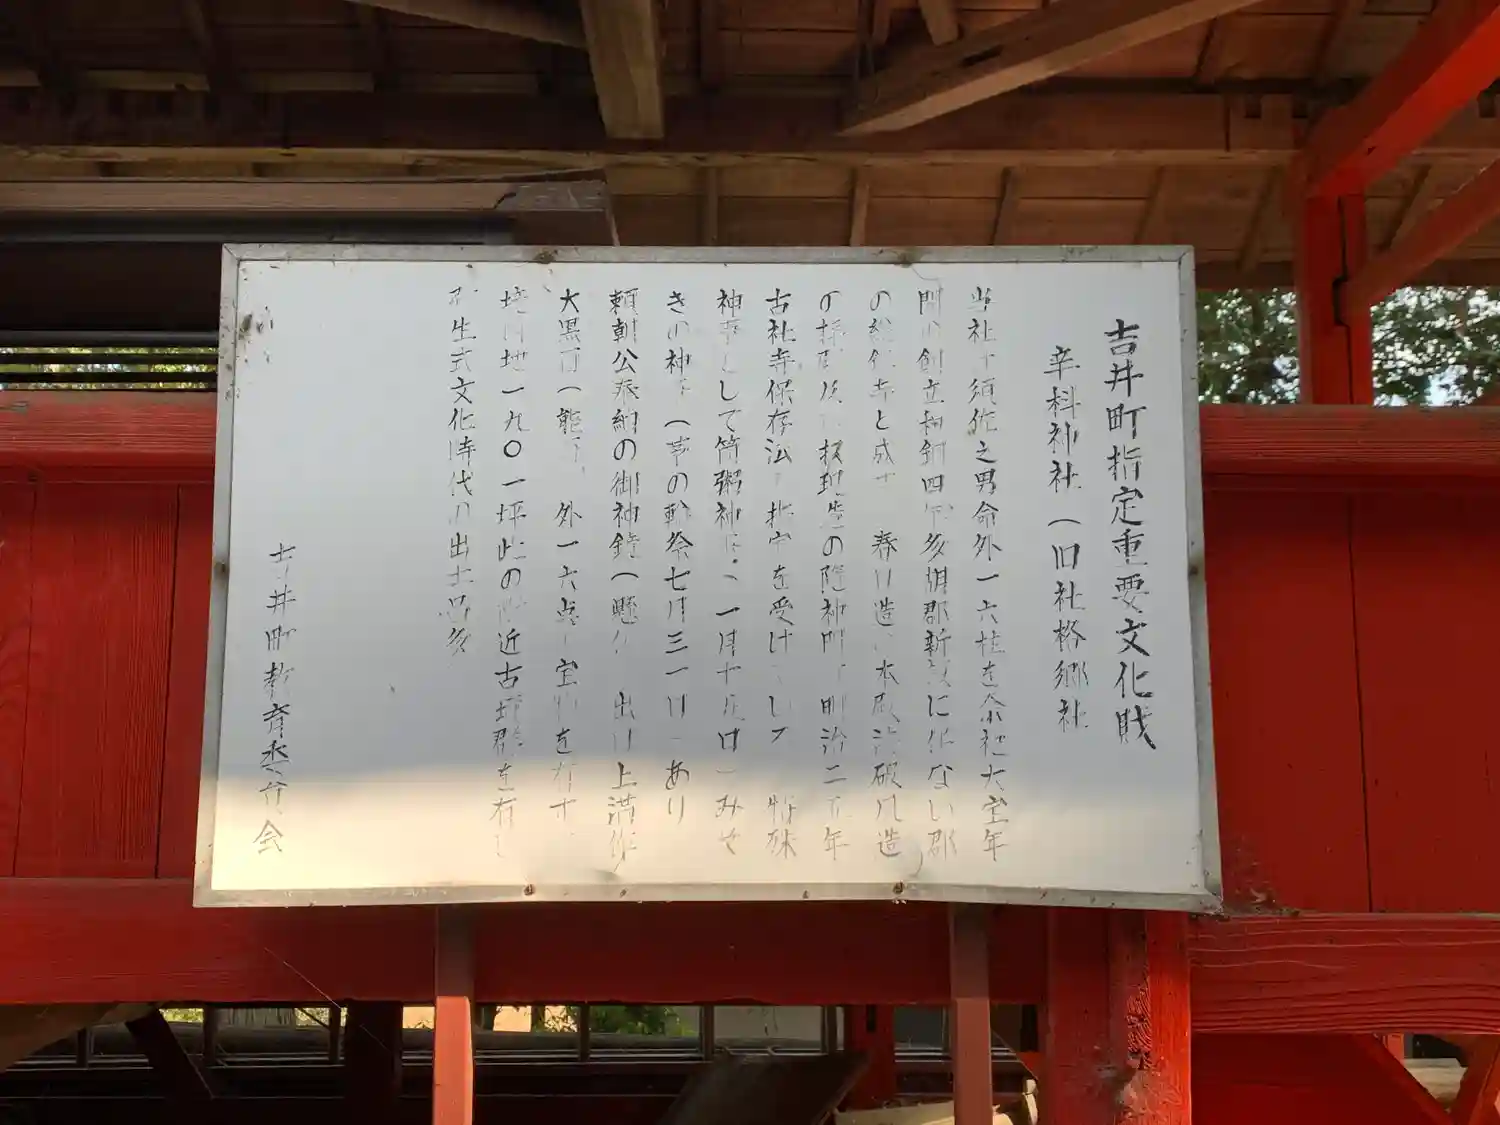 吉井町指定重要文化財
辛科神社（旧社格郷社
当社 須佐之男命外一六柱を 社大宝年
間 創立和銅四年多胡郡新設に伴ない郡
の総鎮守と成 春日造 本殿 破風造
の拝殿及 校 造の随神門 明治二五年
古社寺保存法 指定を受け して 特殊
神事として筒粥神 一月十五日 みそ
きの神 （茅の輪祭七月三一日 あり
頼朝公奉納の御神鏡（懸仏 出目上満作
大黒面（能 外一六点 宝物を有す
境内地一九〇一坪此の附近古墳群を有し
弥生式文化時代の出土品多
吉井町教育委員会